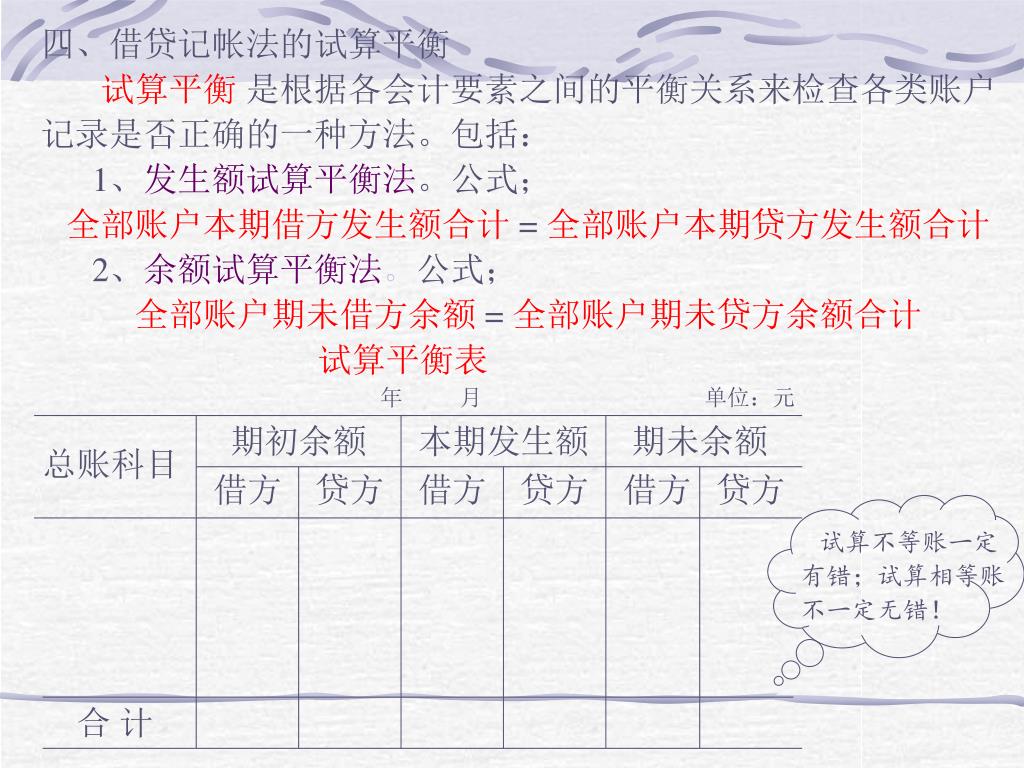 四、借贷记帐法的试算平衡
试算平衡 是根据各会计要素之间的平衡关系来检查各类账户
记录是否正确的一种方法。包括：
1、发生额试算平衡法。公式；
全部账户本期借方发生额合计 = 全部账户本期贷方发生额合计
2、余额试算平衡法。公式；
全部账户期未借方余额 = 全部账户期未贷方余额合计
试算平衡表
年 月 单位：元
总账科目 期初余额 本期发生额 期未余额
借方 贷方 借方 贷方 借方 贷方
试算不等账一定
有错；试算相等账
不一定无错！
合 计